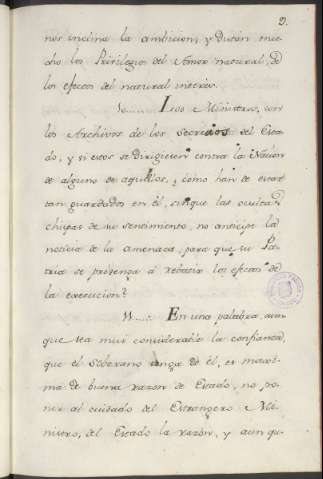 9.
nos incima la ambicion, y Dutan mu-
cho los Privilegios del Amor natural, de
los efectos del natural interès.
V...... Los Ministros, son
los Archivos de los Secretos del Esta-
do, y si estos se dirigiesen contra la Nacion
de alguno de aquellos, ¿como han de estar
tan guardados en èl, sin que las ocultas
chispas de su sentimiento, no anticipe la
noticia de la amenaza, para que su Pa-
tria se prevenga à rebatir los efectos de
la execucion?
W..... En una palabra, aun-
que sea mui considerable la confianza
que el Soberano tenga de èl, es maxi-
ma de buena razon de Estado, no po-
ner al cuidado del Estrangero Mi-
nistro, del Estado la razon, y aunqu-